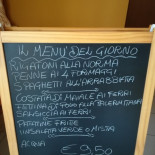 IL MENÙ DEL GIORNO
RIGATONI ALLA NORMA
PENNE AI 4 FORMAGGI
SPAGHETTI ALL'ARRABBIATA
COSTATA DI MAIALE AI FERRI
FETTINA DI POLLO ALLA PALERMITANA
SALSICCIA AI FERRI
PATATINE FRITTE
INSALATA VERDE o MISTA
ACQUA
€ 9,50